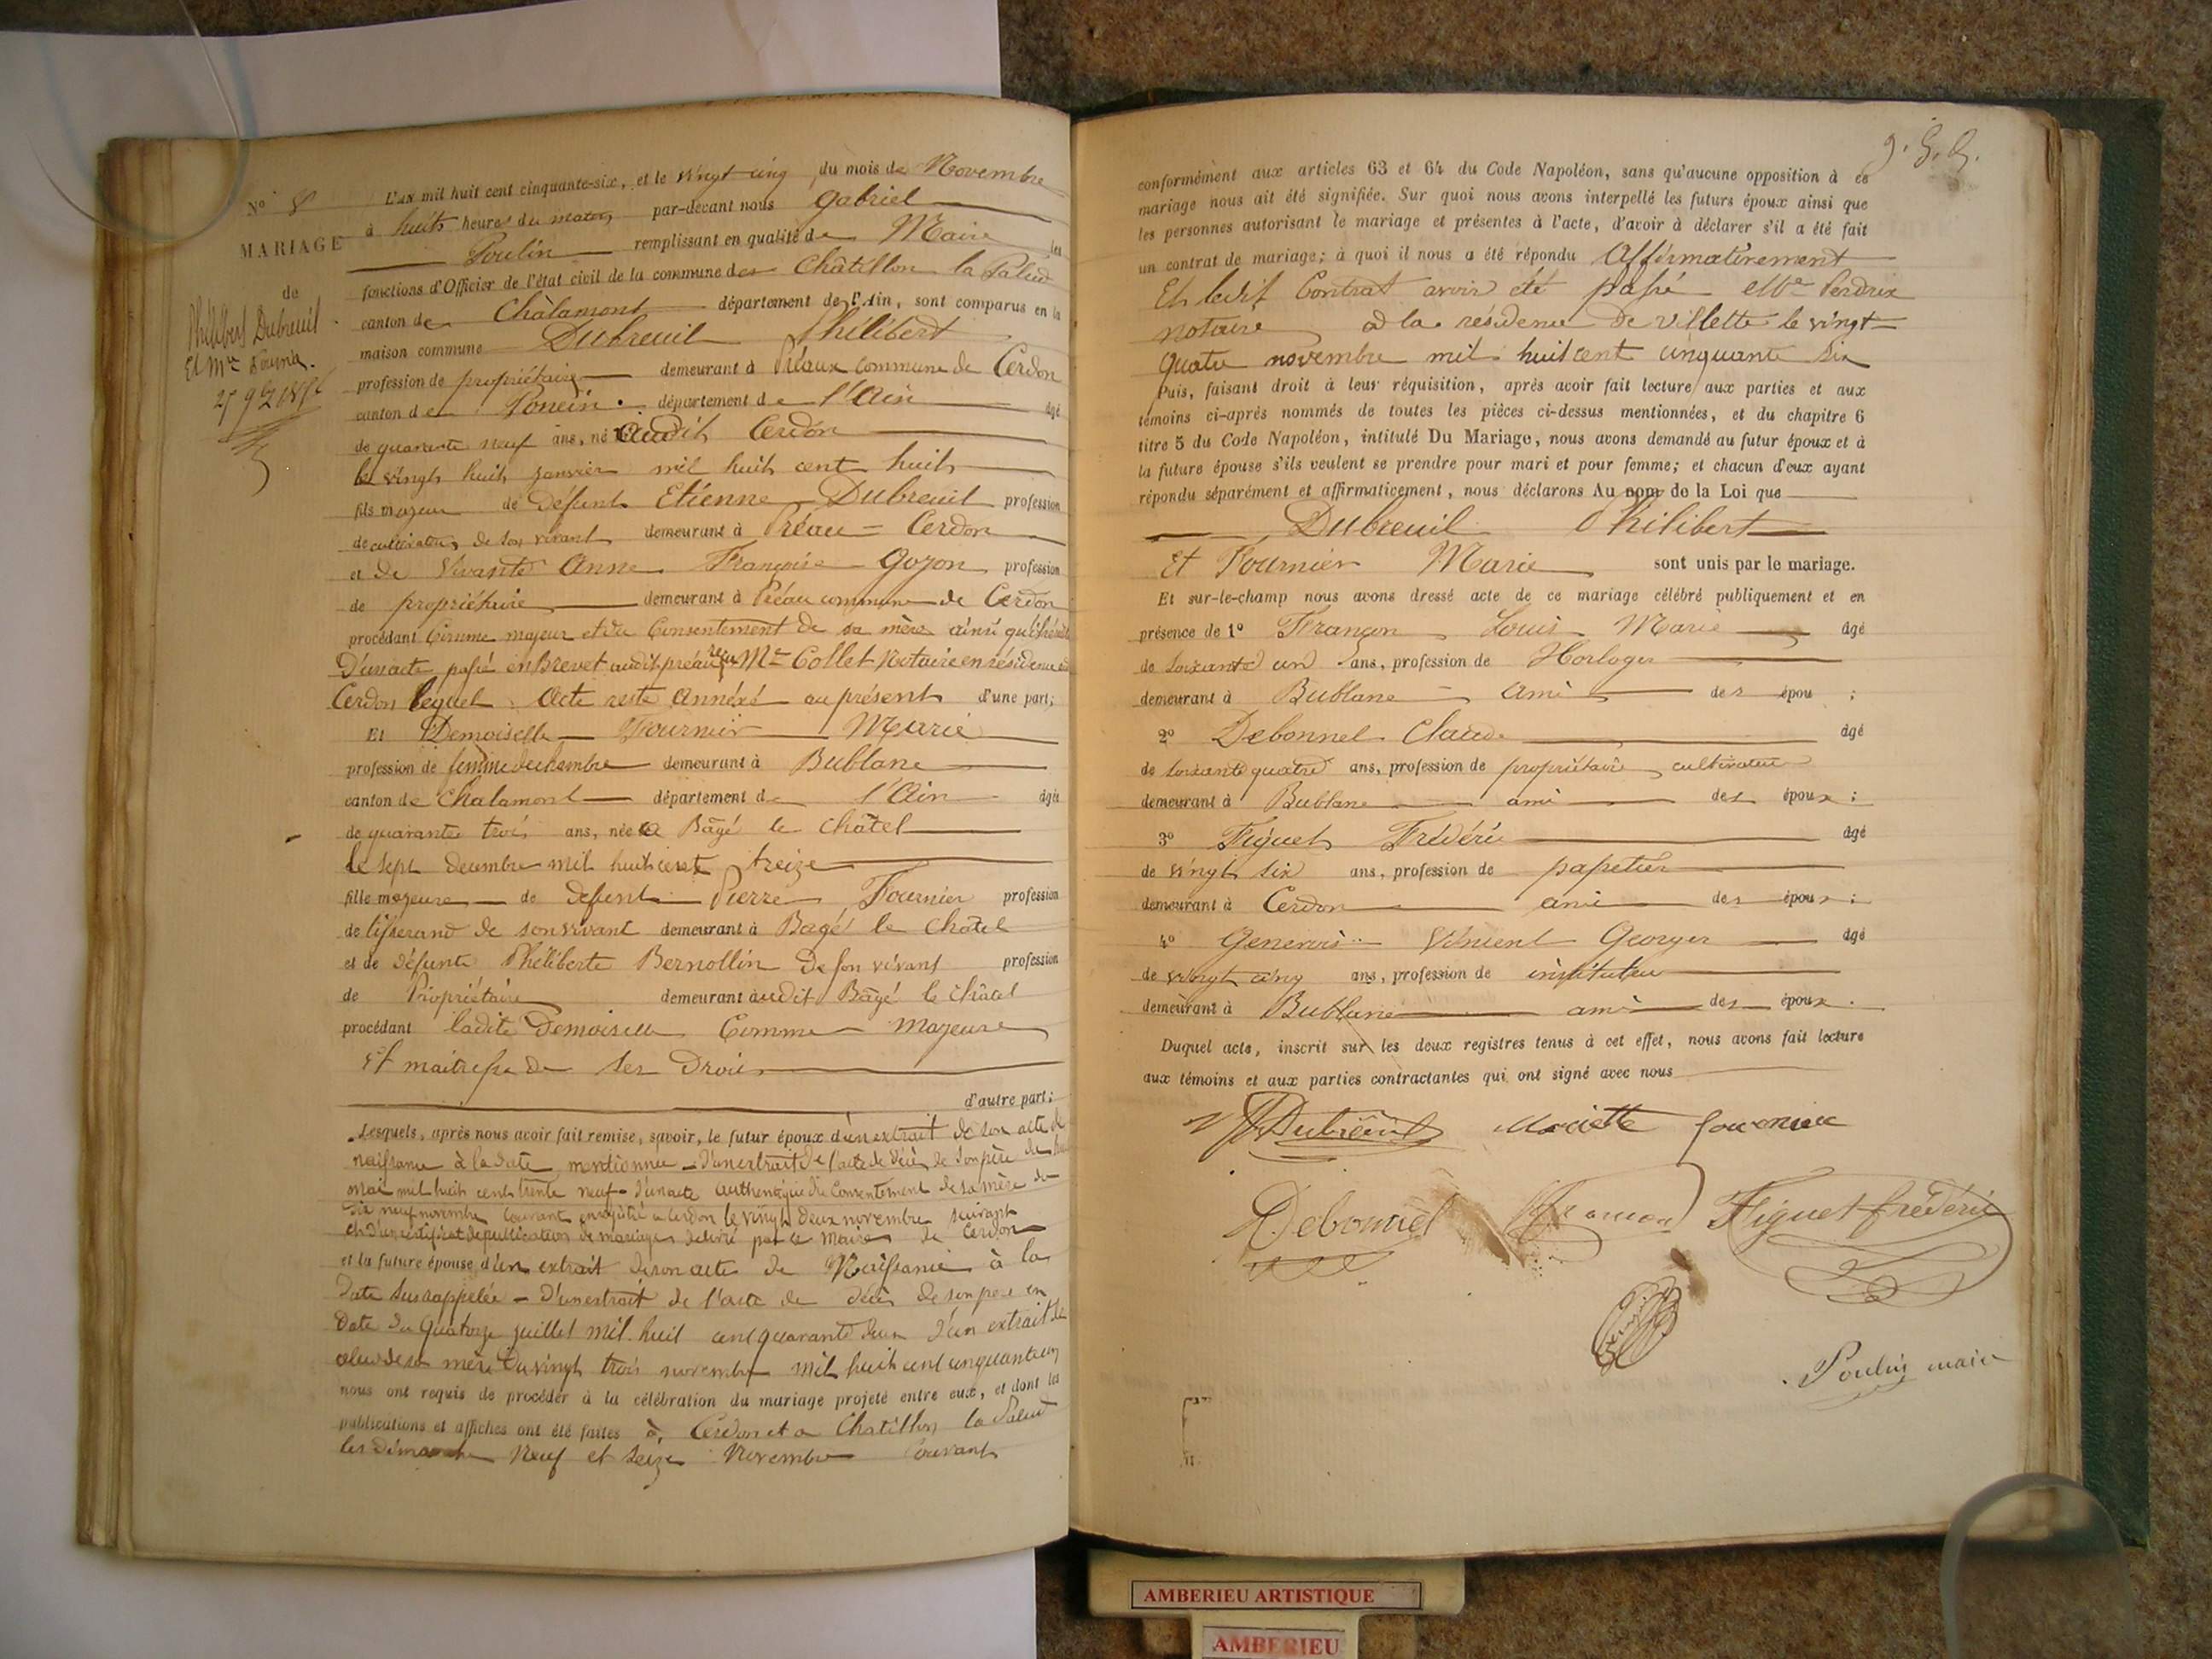 N° 8
MARIAGE
de
Philibert Dubreuil
Et Mie Fournier
L'an mil huit cent cinquante-six, et le vingt cinq du mois de Novembre
à huit heures du matin par-devant nous Gabriel
Poulin remplissant en qualité de Maire les
fonctions d'Officier de l'état civil de la commune de Châtillon la Palud
canton de Châlamont département de l'Ain, sont comparus en la
maison commune Dubreuil Philibert
profession de propriétaire demeurant à Préaux commune de Cerdon
canton de Poncin département de l'Ain âgé
de quarante neuf ans, né audit Cerdon
le vingt huit janvier mil huit cent huit
fils majeur de défunt Etienne Dubreuil profession
de cultivateur de son vivant demeurant à Préau = Cerdon
et de vivante Anne Françoise Gozon profession
de propriétaire demeurant à Préau commune de Cerdon
procédant comme majeur et du Consentement de sa mère ainsi qu'il résulte
D'un acte passé en Brevet audit préau reçu Me Collet Notaire en résidence
Cerdon lequel acte reste annéxé au présent d'une part;
Et Demoiselle Fournier Marie
profession de femme de chambre demeurant à Bublane
canton de Chalamont département de l'Ain âgée
de quarante trois ans, née à Bâgé le Châtel
le sept decembre mil huit cent treize
fille majeure de defunt Pierre Fournier profession
de tisserand de son vivant demeurant à Bagé le Châtel
et de défunte Philiberte Bernollin De son vivant profession
de Propriétaire demeurant audit Bâgé le châtel
procédant ladite Demoiselle Comme majeure
Et maitresse de ses Droits
d'autre part;
Lesquels, après nous avoir fait remise, savoir, le futur époux d'un extrait de son acte de
naissance à la date mentionnée - D'un extrait de l'acte de décès de son père du
mai mil huit cent trente neuf - D'un acte authentique du Consentement de sa mère du
dix neuf novembre courant enregistré à Cerdon le vingt deux novembre suivant
et d'un certificat de publication de mariage délivré par le Maire de Cerdon
et la future épouse d'un extrait de son acte de Naissance à la
Date susrappelée - D'un extrait de l'acte de décès de son père en
Date du Quatorze juillet mil huit cent quarante deux D'un extrait de
celui de sa mère Du vingt trois novembre mil huit cent cinquante un
nous ont requis de procéder à la célébration du mariage projeté entre eux, et dont les
publications et affiches ont été faites à Cerdon et a Chatillon la Palud
les dimanche Neuf et Seize Novembre Courant
conformément aux articles 63 et 64 du Code Napoléon, sans qu'aucune opposition à ce
mariage nous ait été signifiée. Sur quoi nous avons interpellé les futurs époux ainsi que
les personnes autorisant le mariage et présentes à l'acte, d'avoir à déclarer s'il a été fait
un contrat de mariage; à quoi il nous a été répondu Affirmativement
Et ledit Contrat avoir été passé Me Perdrix
notaire à la résidence De Villette le vingt
quatre novembre mil huit cent cinquante six
Puis, faisant droit à leur réquisition, après avoir fait lecture aux parties et aux
témoins ci-après nommés de toutes les pièces ci-dessus mentionnées, et du chapitre 6
titre 5 du Code Napoléon, intitulé Du Mariage, nous avons demandé au futur époux et à
la future épouse s'ils veulent se prendre pour mari et pour femme; et chacun d'eux ayant
répondu séparément et affirmativement, nous déclarons Au nom de la Loi que
Dubreuil Philibert
Et Fournier Marie sont unis par le mariage.
Et sur-le-champ nous avons dressé acte de ce mariage célébré publiquement et en
présence de 1° Françon Louis Marie âgé
de soixante un ans, profession de Horloger
demeurant à Bublane ami des épou ;
2° Debonnel Claude âgé
de soixante quatre ans, profession de propriétaire cultivateur
demeurant à Bublane ami des époux ;
3° Figuet Frédéric âgé
de vingt six ans, profession de papetier
demeurant à Cerdon ami des époux ;
4° Genevois Vincent Georges âgé
de vingt cinq ans, profession de instituteur
demeurant à Bublane ami des époux .
Duquel acte, inscrit sur les deux registres tenus à cet effet, nous avons fait lecture
aux témoins et aux parties contractantes qui ont signé avec nous
Dubreuil Mariette fournier
Debonnel françon Figuet frédéric
Poulin maire
AMBERIEU ARTISTIQUE
AMBERIEU